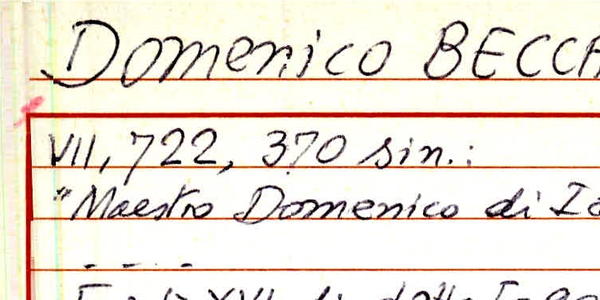 Domenico BECCA
VII, 722, 370 sin.:
"Maestro Domenico di
- - - -